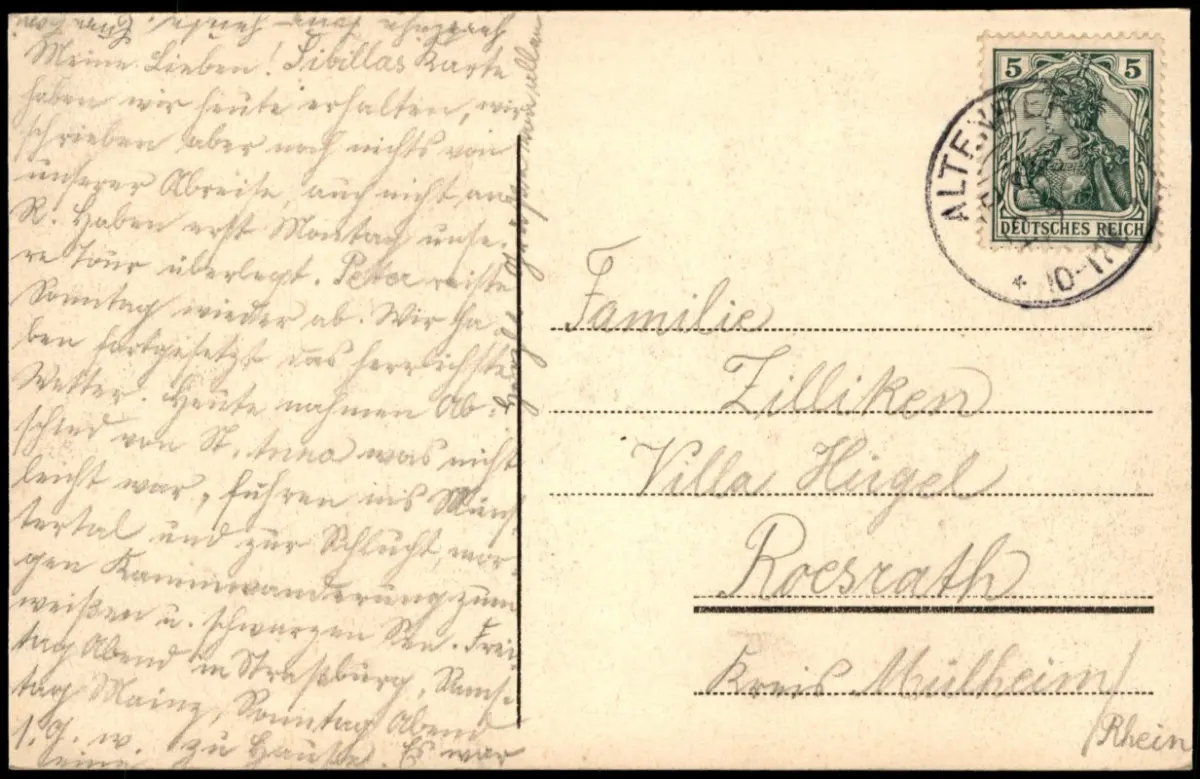 Meine Lieben! Sibillas Karte
haben wir heute erhalten, wir
schrieben aber noch nichts von
unserer Abreise, auch nicht an
R. Haben erst Montag unse-
re Tour überlegt. Peter reiste
Sonntag wieder ab. Wir ha-
ben fortgesetzt das herrlichste
Wetter. Heute nahmen Ab-
schied von St. Anna was nicht
leicht war, fuhren ins Müns
tertal und zur Schlucht, mor-
gen Kammwanderung zum
weißen u. schwarzen See. Frei-
tag Abend in Straßburg, Sams-
tag Mainz, Sonntag Abend
s. G. w. zu Hause. Es war
eine
5 5
DEUTSCHES REICH
ALTENWEIE
* 10-11
Familie
Zilliken
Villa Hügel
Roesrath
Kreis Mülheim/
/Rhein